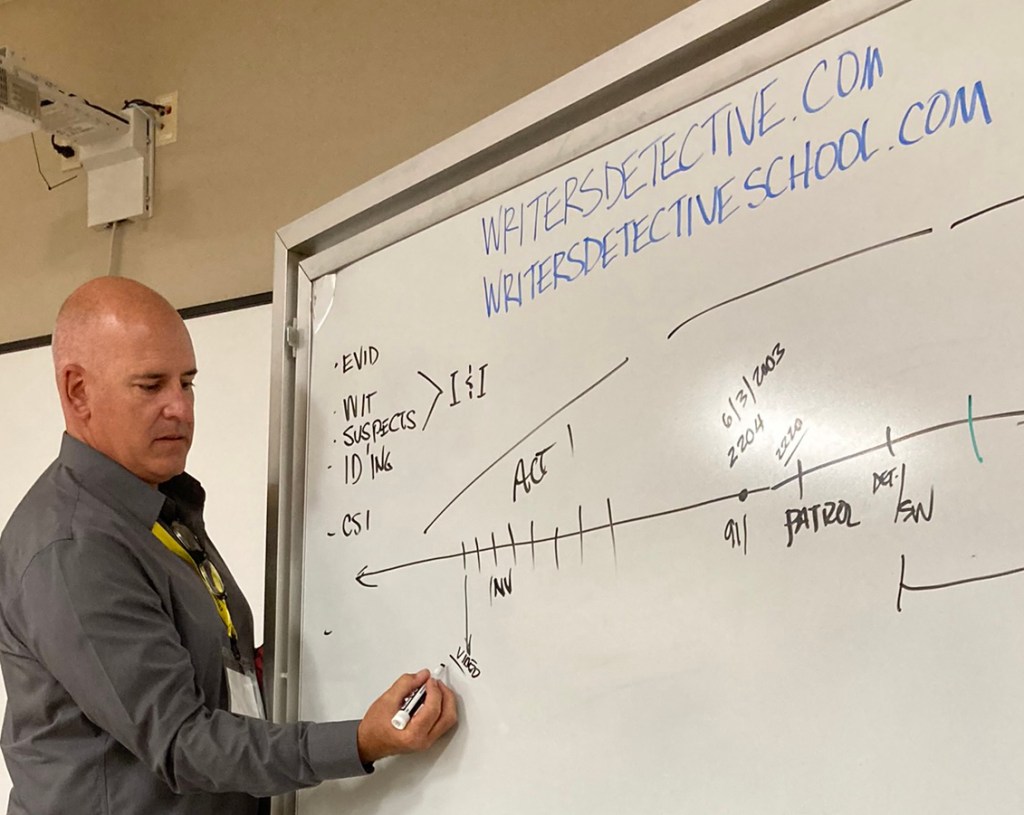 WRITERSDETECTIVE.COM
WRITERSDETECTIVESCHOOL.COM
· EVID
· WIT
· SUSPECTS
I & I
· ID'ING
- CSI
ACT 1
6/3/2003
2204
2220
911
PATROL
DET.
SW
INV
VIDEO